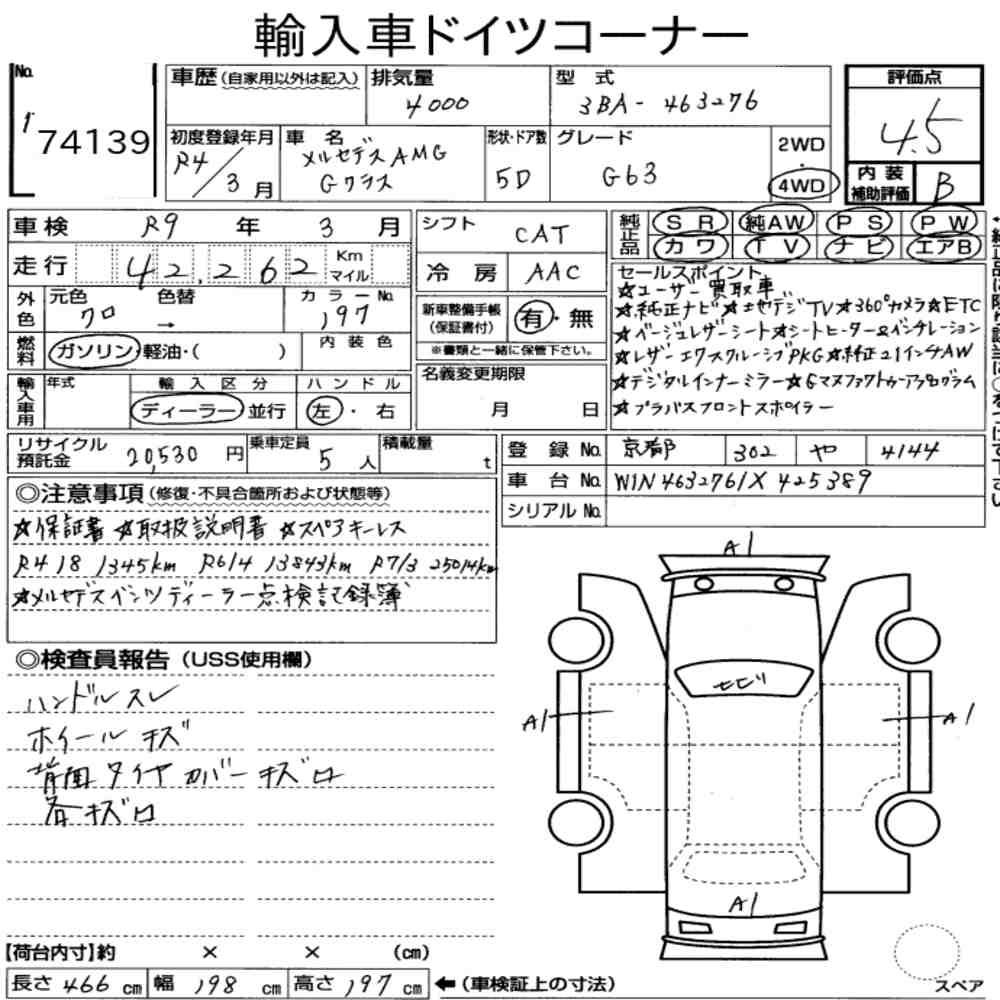 輸入車ドイツコーナー
No.
1
74139
車歴(自家用以外は記入)
排気量
4000
型 式
3BA-463276
評価点
4.5
初度登録年月
R4/3月
車 名
メルセデスAMG
Gクラス
形状・ドア数
5D
グレード
G63
2WD
・
4WD
内 装
補助評価
B
車検 R9 年 3 月
走行 42,262 Km マイル
シフト CAT
冷 房 AAC
純正品 SR 純AW PS PW
カワ TV ナビ エアB
外色 元色 クロ 色替 → カラーNo. 197
燃料 ガソリン・軽油・( ) 内 装 色
新車整備手帳
(保証書付)
有・無
※書類と一緒に保管下さい。
セールスポイント
☆ユーザー買取車
☆純正ナビ☆地デジTV☆360°カメラ☆ETC
☆ベージュレザーシート☆シートヒーター&ベンチレーション
☆レザーエクスクルーシブPKG☆純正21インチAW
☆デジタルインナーミラー☆Gマヌファクトゥーアプログラム
☆ブラバスフロントスポイラー
輸入車用 年式 輸入区分 ハンドル
ディーラー・並行 左・右
名義変更期限
月 日
リサイクル
預託金
20,530 円
乗車定員 5 人
積載量 t
登 録 No. 京都 302 や 4144
車 台 No. W1N4632761X425389
シリアル No.
◎注意事項(修復・不具合箇所および状態等)
☆保証書 ☆取扱説明書 ☆スペアキーレス
R4 18 1345km R6/4 13843km R7/3 25014km
☆メルセデスベンツディーラー点検記録簿
◎検査員報告(USS使用欄)
ハンドルスレ
ホイールキズ
背面タイヤカバーキズロ
各キズロ
A1
モビリ
A1
A1
A1
【荷台内寸】約 × × (cm)
長さ 466 cm 幅 198 cm 高さ 197 cm ←(車検証上の寸法)
スペア